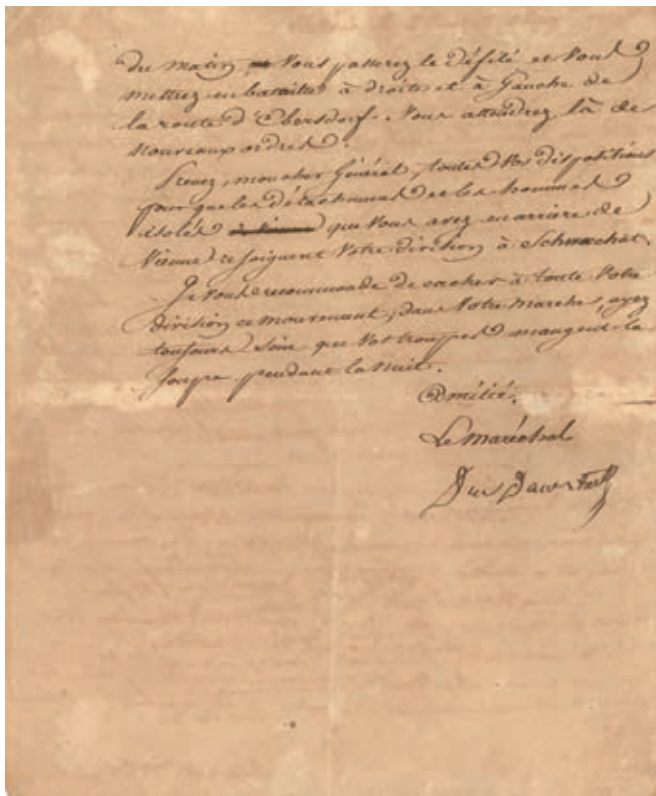 du matin vous passerez le défilé et vous
mettrez en bataille à droite et à Gauche de
la route d'Ebersdorf. Vous attendrez là de
nouveaux ordres.
Prenez, mon cher Général, toutes vos dispositions
pour que les détachemens et les hommes
isolés à Vienne que vous avez en arrière de
Vienne rejoignent votre division à Schwechat.
Je vous recommande de cacher à toute votre
division ce mouvement, dans votre marche, ayez
toujours soin que vos troupes mangent la
soupe pendant la nuit.
Amitié.
Le Maréchal
Duc d'auerstaedt